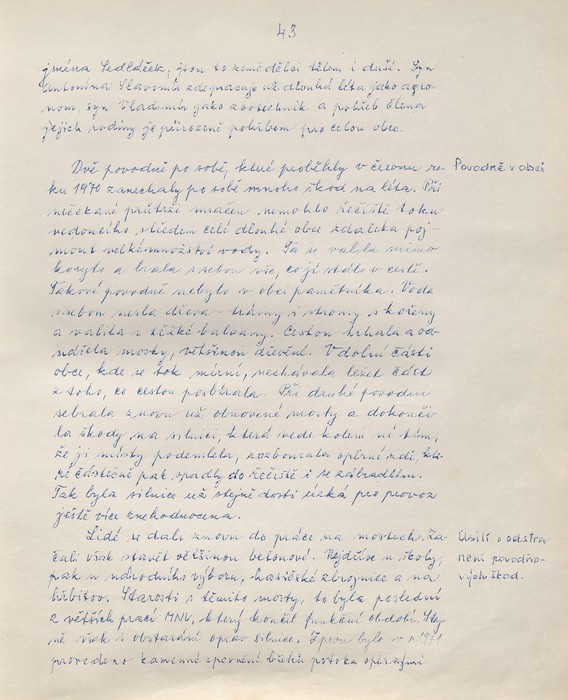 43
jména Sedláček, jsou to zemědělci tělem i duší. Syn
Antonína Slavomír zde pracuje už dlouhá léta jako agro-
nom, syn Vladimír jako zootechnik a pohřeb člena
jejich rodiny je přirozeně pohřbem pro celou obec.
Dvě povodně po sobě, které proběhly v červnu ro- Povodně v obci
ku 1970 zanechaly po sobě mnoho škod na léta. Při
nečekané průtrži mračen nemohlo řečiště toku
vedoucího středem celé dlouhé obce zdaleka poj-
mout velké množství vody. Ta se valila mimo
koryto a brala s sebou vše, co jí stálo v cestě.
Takové povodně nebylo v obci pamětníka. Voda
s sebou nesla dřeva - trámy i stromy s kořeny
a valila i těžké balvany. Cestou trhala a od-
nášela mosty, většinou dřevěné. V dolní části
obce, kde se tok mírní, nechávala ležet část
z toho, co cestou posbírala. Při druhé povodni
sebrala znovu už obnovené mosty a dokonči-
la škody na silnici, která vede kolem ní tím,
že ji místy podemlela, rozbourala opěrné zdi, kte-
ré částečně pak spadly do řečiště i se zábradlím.
Tak byla silnice už stejně dosti úzká pro provoz
ještě více znehodnocena.
Lidé se dali znovu do práce na mostech. Za- Úsilí o odstra-
čali však stavět většinou betonové. Nejdříve u školy, nění povodňo-
pak u národního výboru, hasičské zbrojnice a na vých škod.
hřbitov. Starosti s těmito mosty, to byla poslední
z větších prací MNV, který končil funkční období. Stej-
ně však i obstarání oprav silnice. Zprvu bylo v r. 1971
provedeno kamenné zpevnění břehů potoka opěrnými